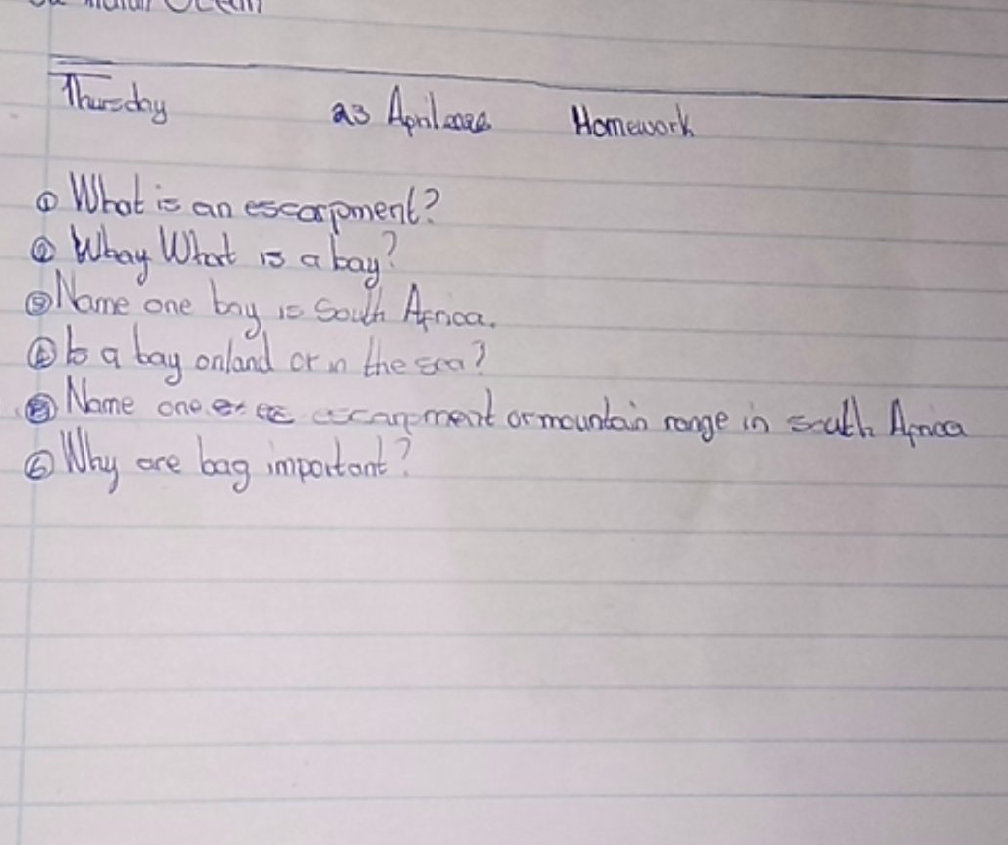 Indian Ocean
Thursday 23 April 2026 Homework
① What is an escarpment?
② Whay What is a bay?
③ Name one bay is South Africa.
④ Is a bay onland or in the sea?
⑤ Name one escarpment or mountain range in south Africa
⑥ Why are bag important?